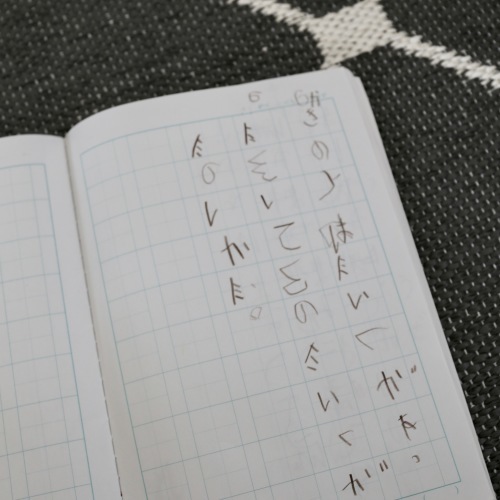 きのうはたいくがた、
たんいてんのたいくが
たのしかた。